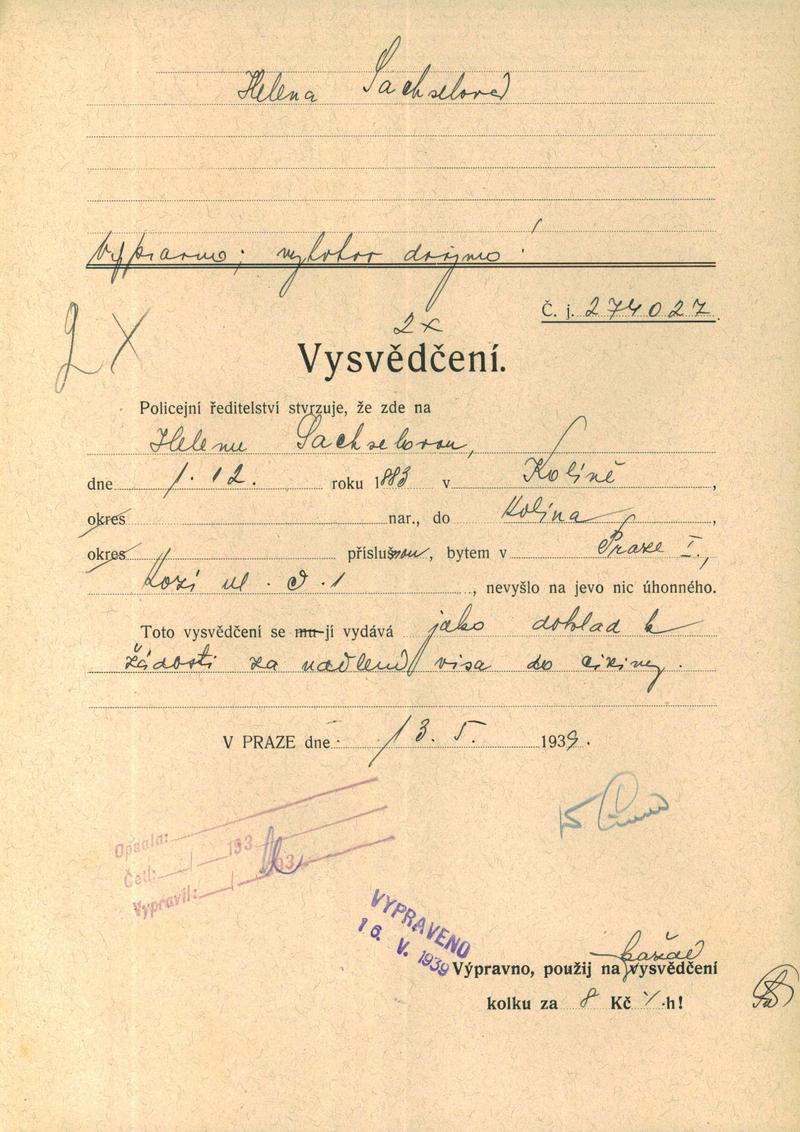 Helena Sachselová
Výpravno; vyhotov dvojmo!
Č. j. 274027
2x
2x
Vysvědčení.
Policejní ředitelství stvrzuje, že zde na
Helenu Sachselovou,
dne 1. 12. roku 1883 v Kolíně,
okres nar., do Kolína,
okres příslušnou, bytem v Praze I.,
Kozí ul. č. 1, nevyšlo na jevo nic úhonného.
Toto vysvědčení se mu-jí vydává jako doklad k
žádosti za udělení visa do ciziny.
V PRAZE dne 13. 5. 1939.
Opsala:
Četl: 193
Vypravil: 193
VYPRAVENO
16. V. 1939
každé
Výpravno, použij na vysvědčení
kolku za 8 Kč h!